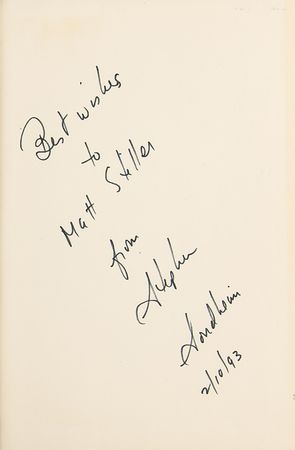 Best wishes
to
Matt Stiller
from
Stephen
Sondheim
2/10/93